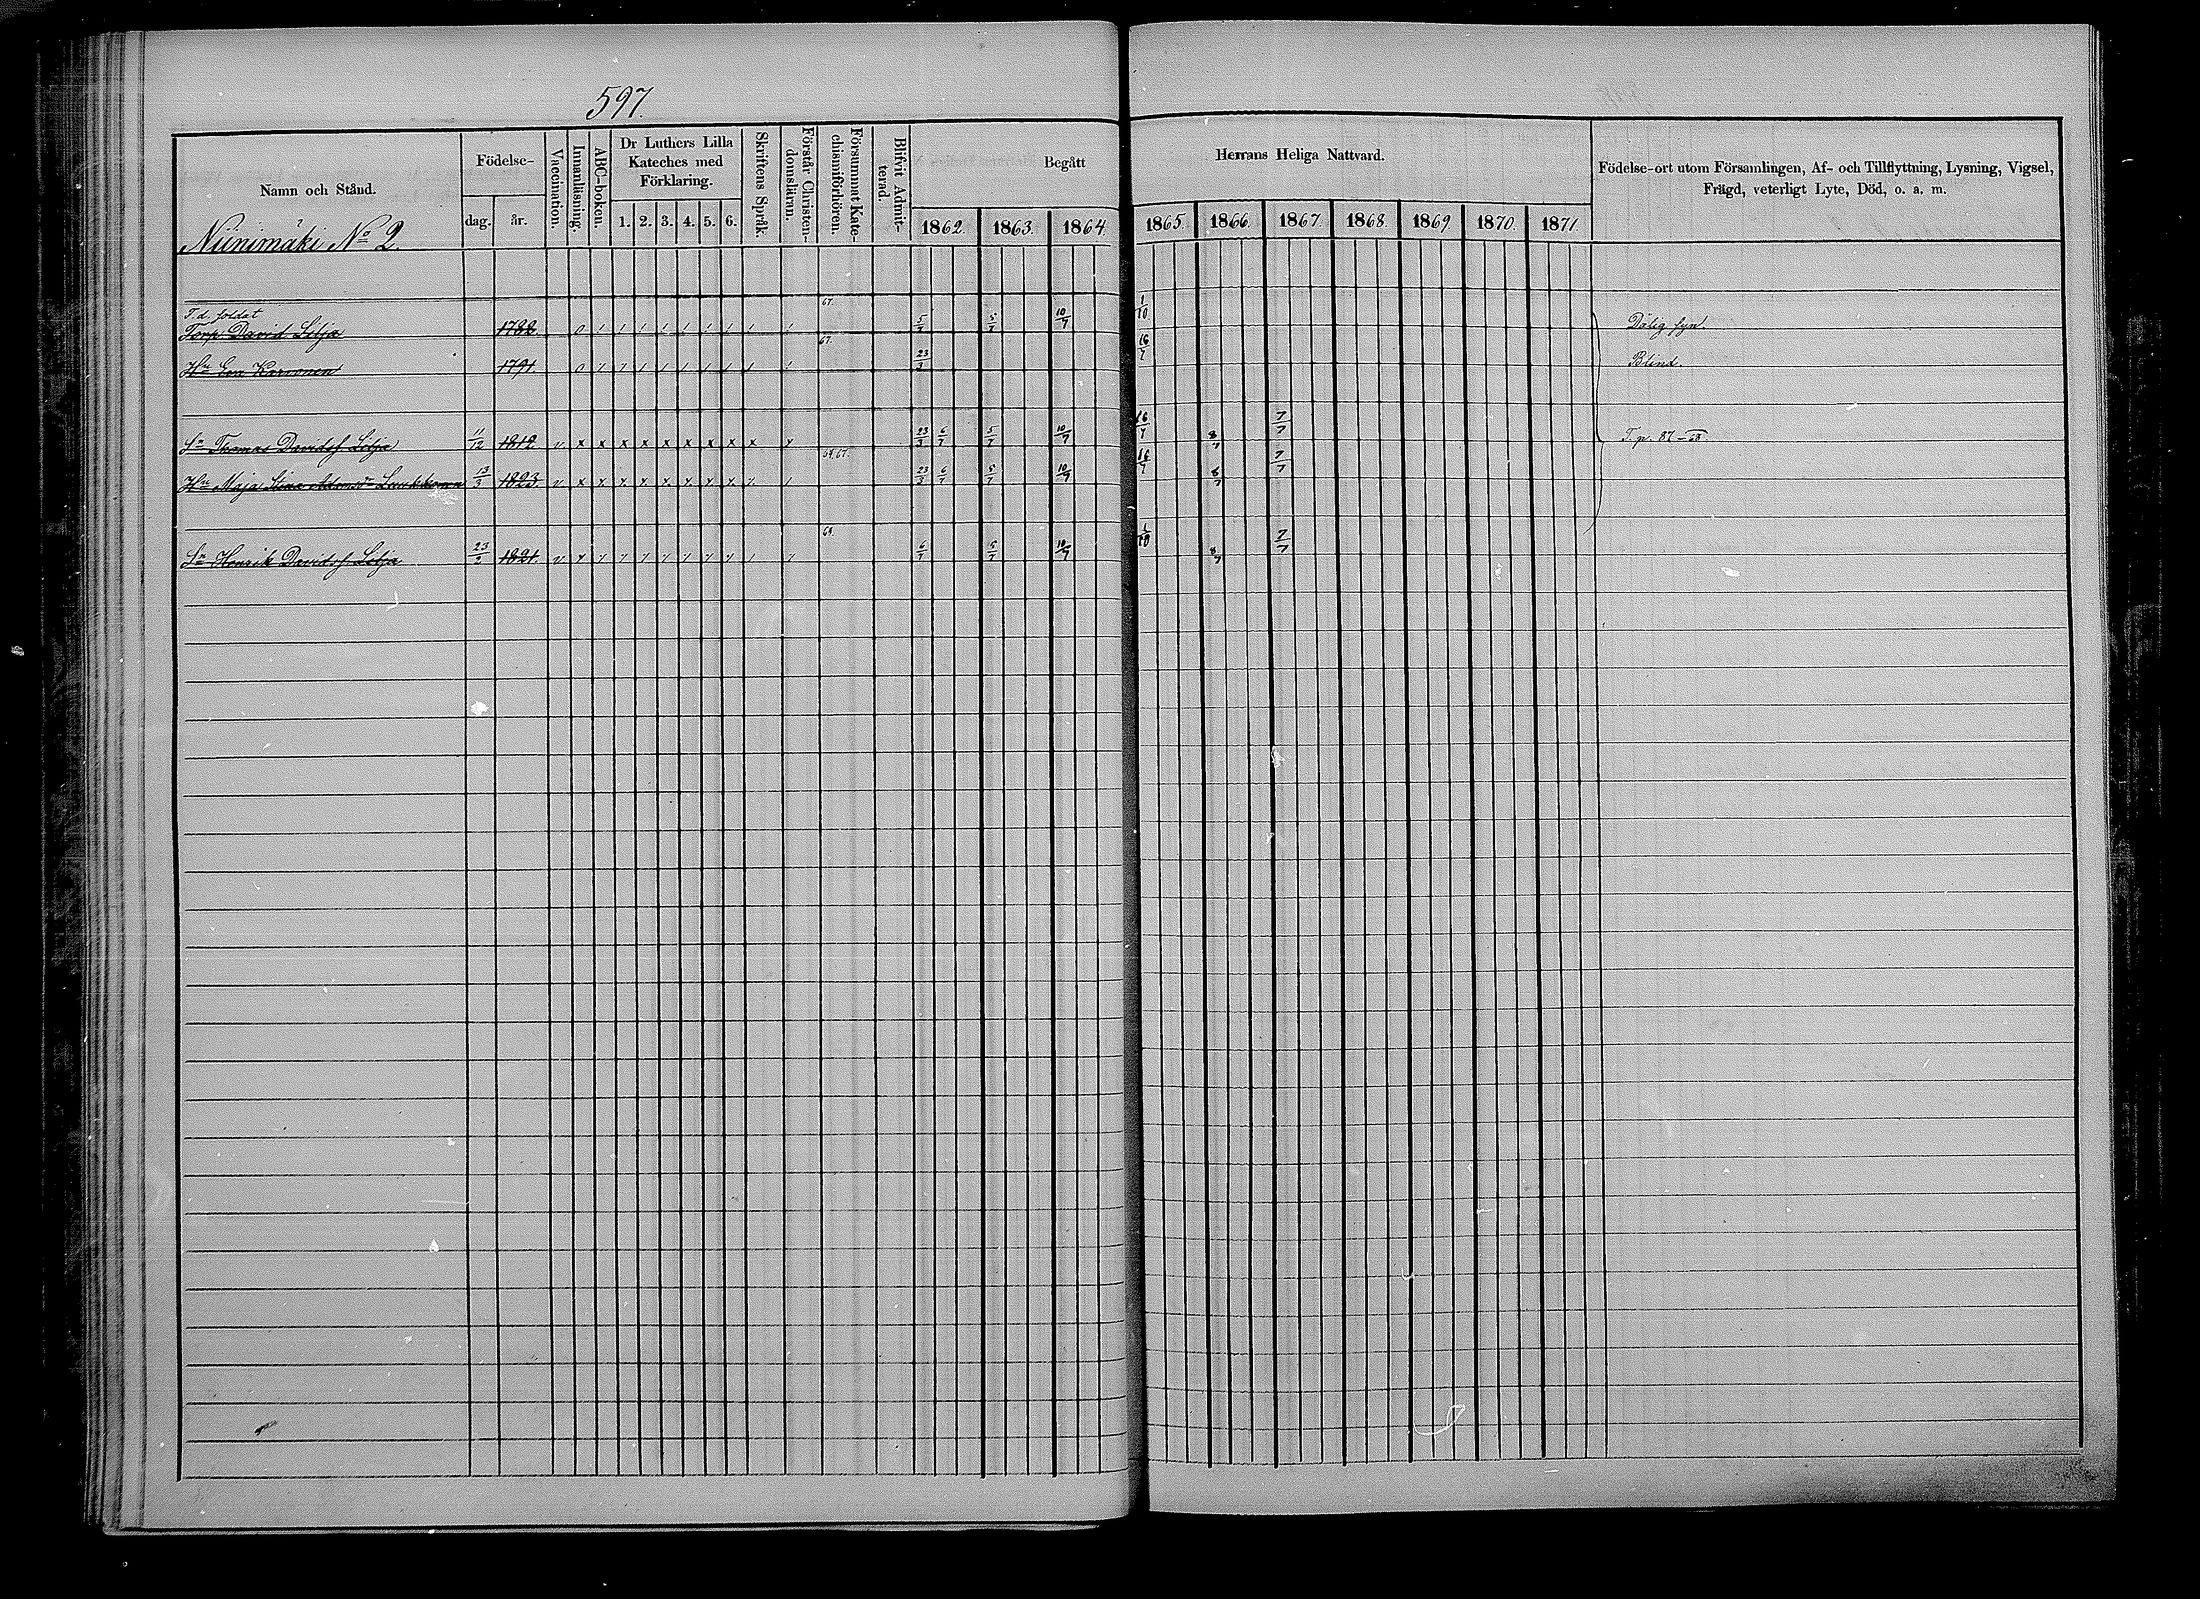 597.
Namn och Stånd.
Födelse-
dag.
år.
Vaccination.
Innanläsning.
ABC-boken.
Dr Luthers Lilla
Kateches med
Förklaring.
1. 2. 3. 4. 5. 6.
Skriftens Språk.
Förstår Christen-
domsläran.
Försummat Kate-
chismiförhören.
Blifvit Admit-
terad.
Begått
Herrans Heliga Nattvard.
1862 1863. 1864. 1865. 1866. 1867. 1868. 1869. 1870. 1871.
Födelse-ort utom Församlingen, Af- och Tillflyttning, Lysning, Vigsel,
Frägd, veterligt Lyte, Död, o. a. m.
Niinimäki No 2.
T.d. soldat 67.
Torp. David Lilja 1788. 0 / / / / / / / / / 5/7 5/7 10/7 1/10 Dålig syn.
67.
Hu Eva Karvonen 1791. 0 / / / / / / / / / 23/3 16/7 Blind.
Sn Thomas Davidsf Lilja 11/12 v x x x x x x x x x x 23/3 6/7 5/7 10/7 16/7 8/7 7/7 T. p. 87 – 68
Hu Maja Stina Adamsdr 13/3 1823. v 23/3 6/7 5/7 10/7 16/7 8/7 7/7
68.
Sn Henrik Davidsf. Lilja 23/2 1821. v 6/7 5/7 10/7 1/10 8/7 7/7